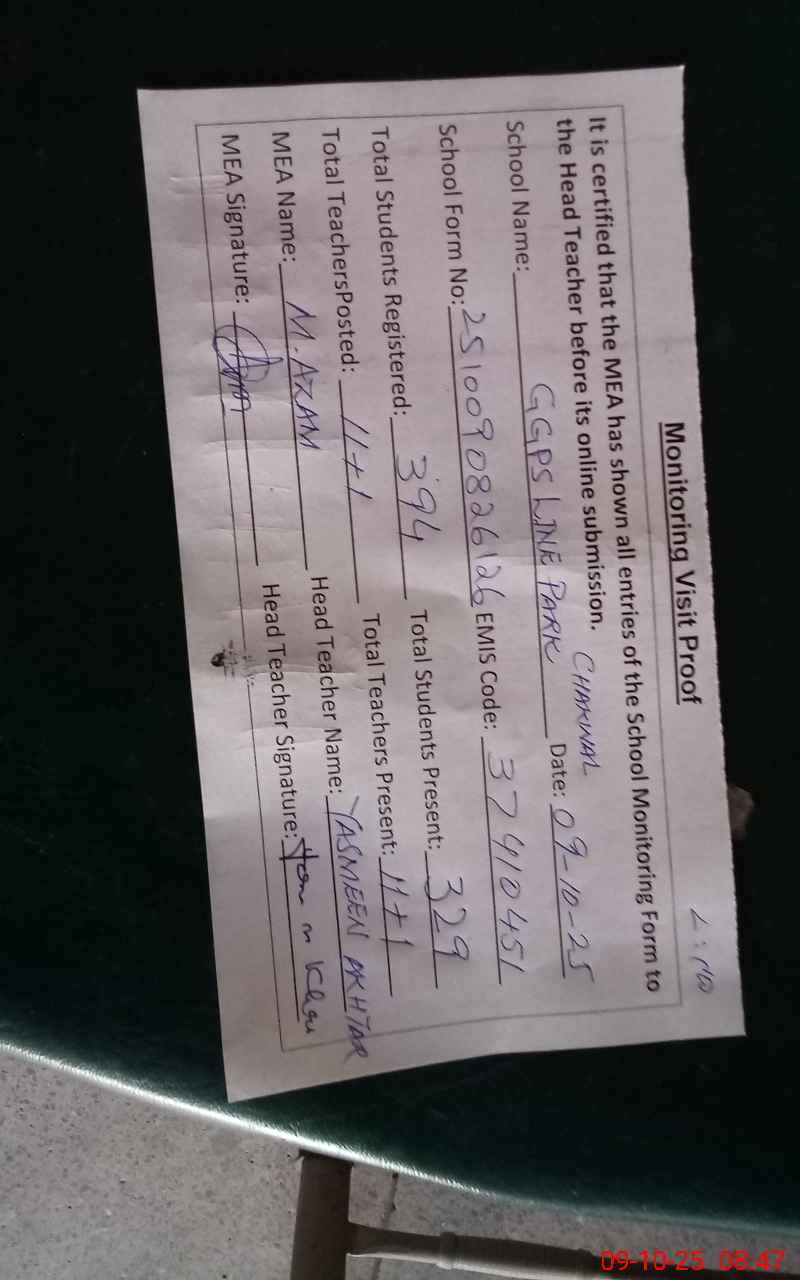 Monitoring Visit Proof
It is certified that the MEA has shown all entries of the School Monitoring Form to
the Head Teacher before its online submission. CHAKWAL
School Name: GGPS LINE PARK Date: 09-10-25
School Form No: 2510090826126 EMIS Code: 37410451
Total Students Registered: 394 Total Students Present: 329
Total TeachersPosted: 11+1 Total Teachers Present: 11+1
MEA Name: M. AZAM Head Teacher Name: YASMEEN AKHTAR
MEA Signature: Head Teacher Signature:
09-10-25 08:47